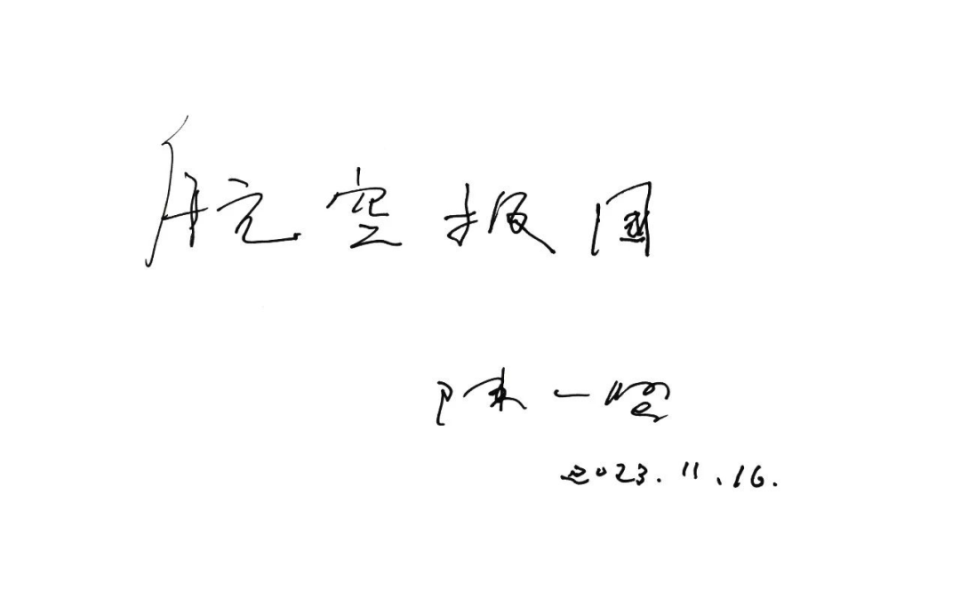 航空报国
陈一坚
2023.11.16.